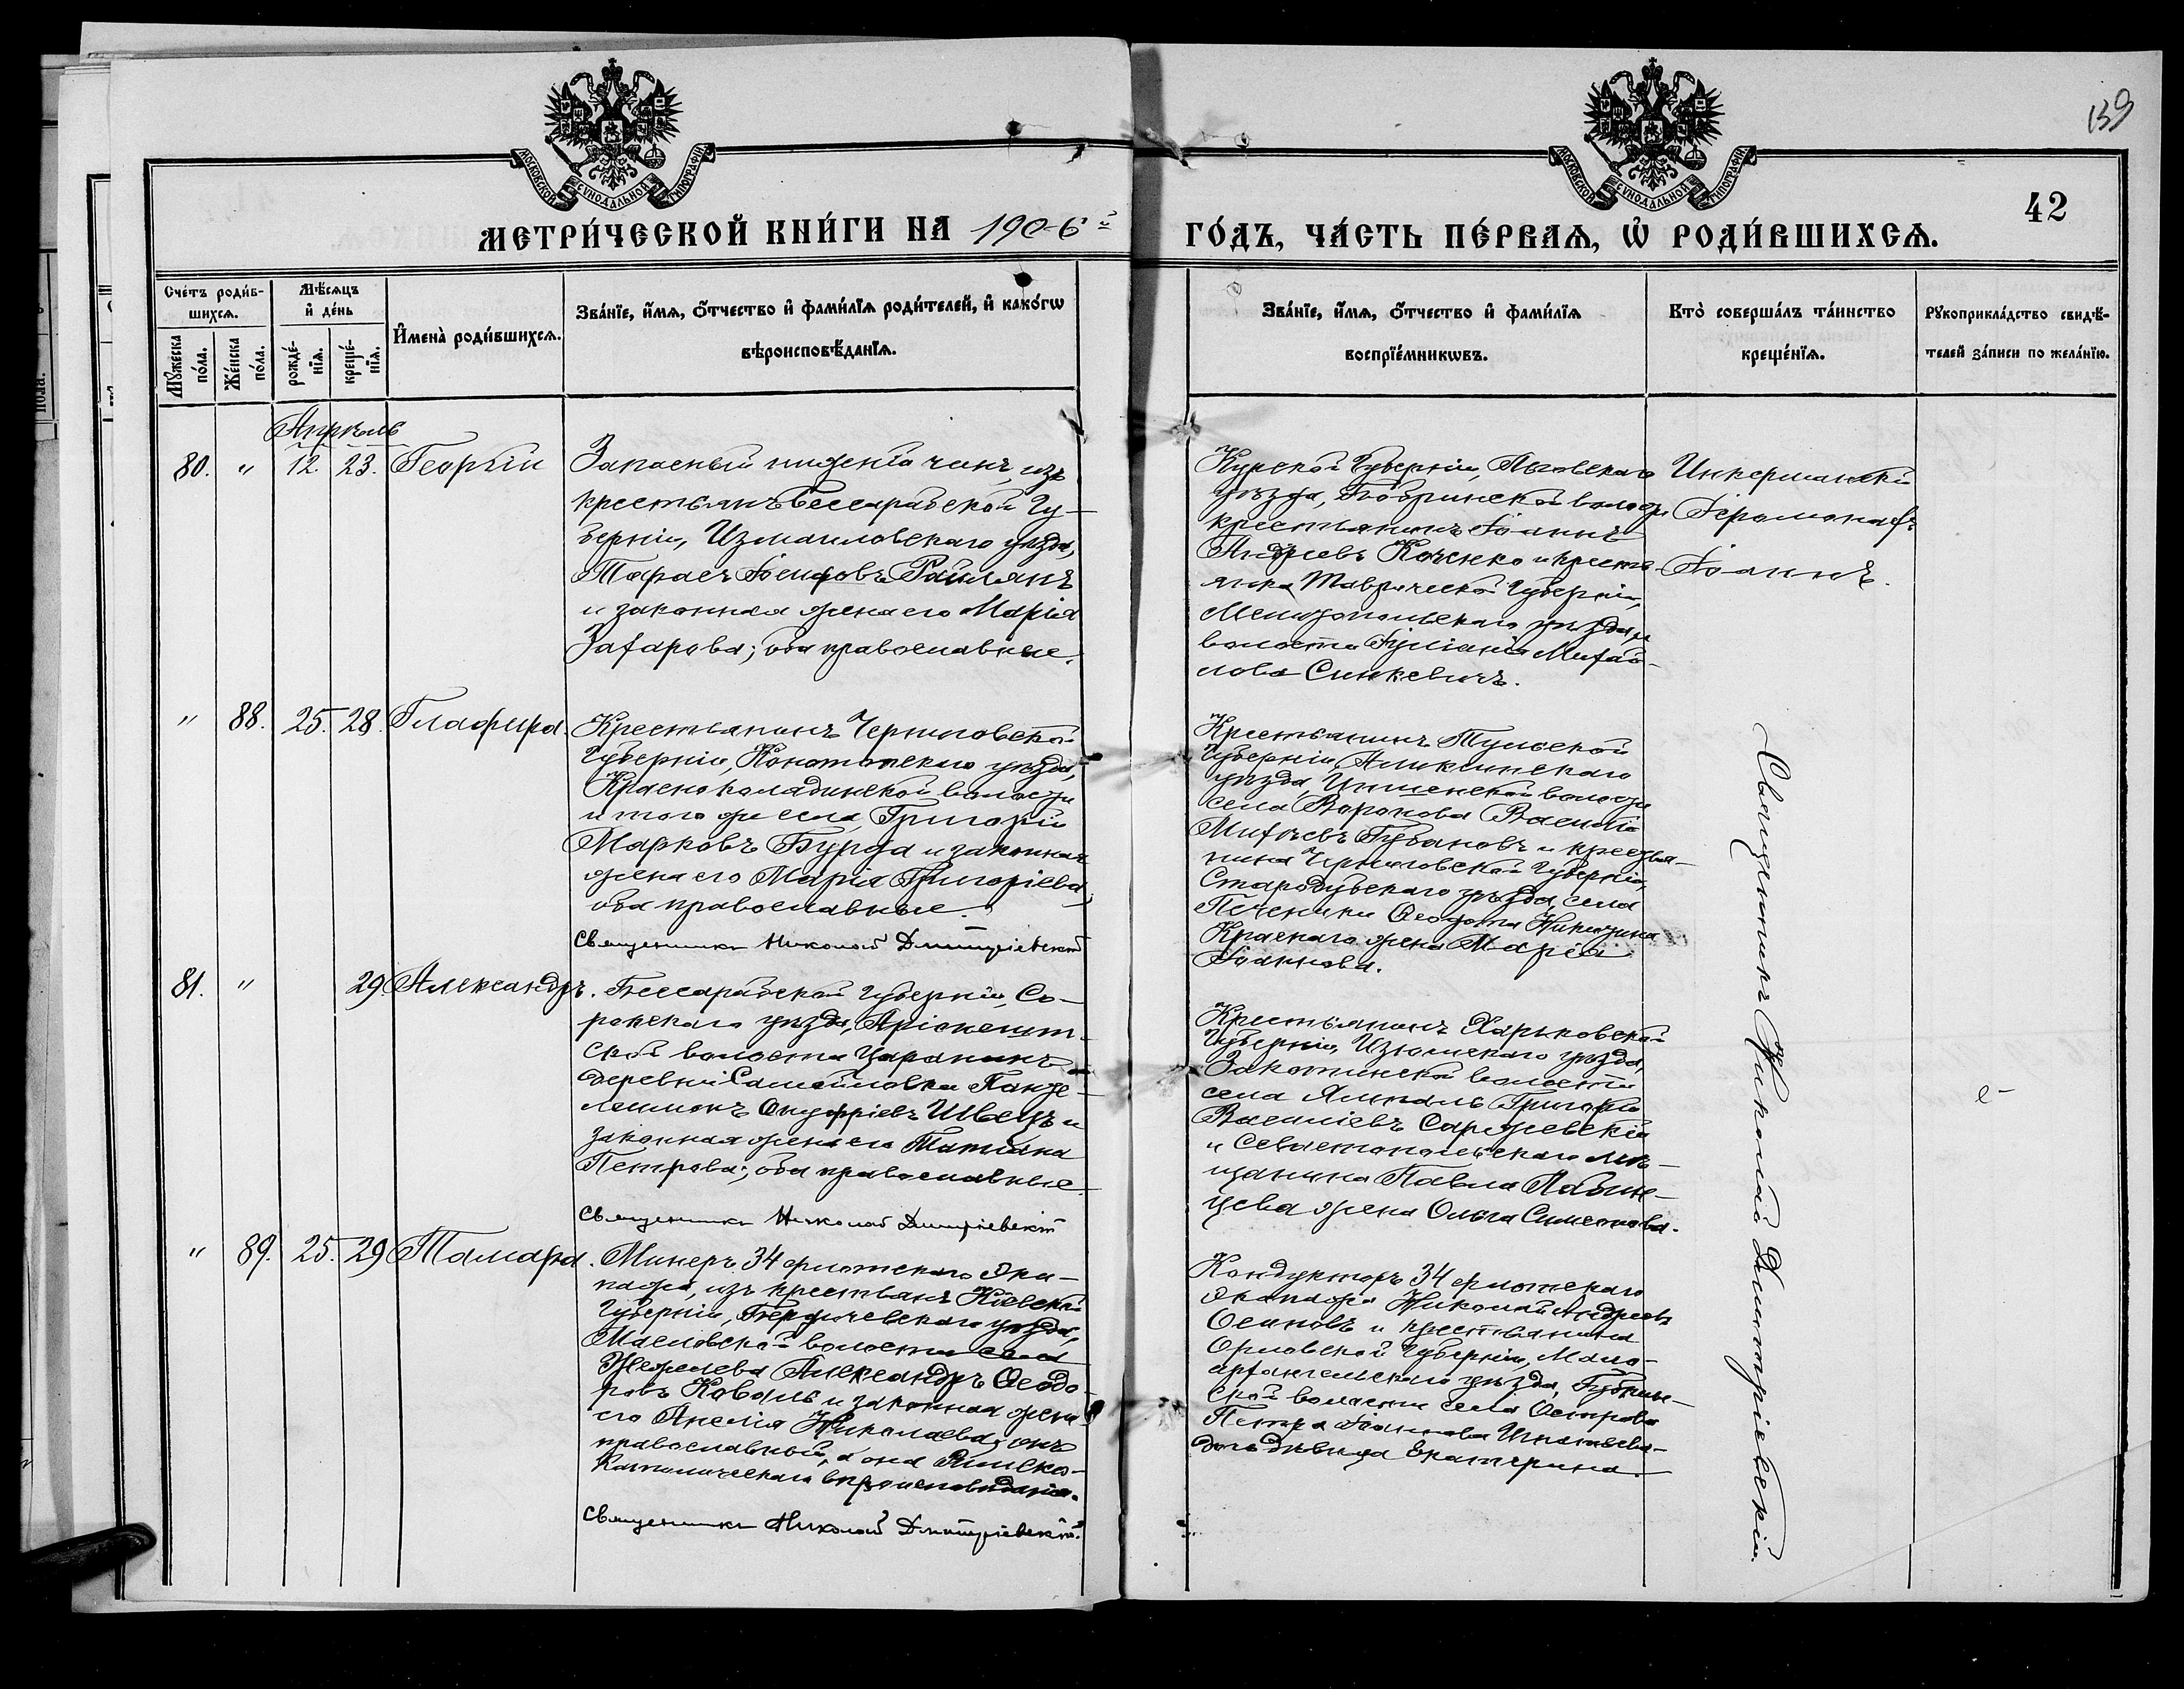 139
МОСКОВСКОЙ СѴНОДАЛЬНОЙ ТИПОГРАФІИ
МОСКОВСКОЙ СѴНОДАЛЬНОЙ ТИПОГРАФІИ
42
МЕТРИ́ЧЕСКОЙ КНИ́ГИ НА 1906й
ГО́ДЪ, ЧА́СТЬ ПЕ́РВАѦ, Ѡ҆ РОДИ́ВШИХСѦ.
Сче́тъ роди́в-
шихсѧ.
Мꙋ́жеска
по́ла.
Же́нска
по́ла.
Мѣ́сѧцъ
и҆ де́нь
рожде́-
нїѧ.
креще́-
нїѧ.
И҆мена̀ роди́вшихсѧ.
Зва́нїе, и҆́мѧ, ѻ҆́тчество и҆ фами́лїѧ роди́телей, и҆ како́гѡ
вѣроисповѣ́данїѧ.
Зва́нїе, и҆́мѧ, ѻ҆́тчество и҆ фами́лїѧ
воспрїе́мникѡвъ.
Кто̀ соверша́лъ та́инство
креще́нїѧ.
Рꙋкоприкла́дство свидѣ́-
телей за́писи по жела́нїю.
Апрѣль
80. " 12. 23. Георгій
Запасный нижній чинъ, изъ
крестьянъ Бессарабской Гу-
берніи, Измаиловскаго уѣзда,
Тарасъ Іосифовъ Райлянъ
и законная жена его Марія
Захарова; оба православные.
Курской Губерніи, Льговскаго
уѣзда, волости
крестьянинъ Іоаннъ
Андреевъ Коченко и кресть-
янка Таврической Губерніи,
Мелитопольскаго уѣзда и
волости Іуліанія Михай-
лова Синкевичъ.
Инкерманскій
Іеромонахъ
Іоаннъ.
" 88. 25. 28. Глафира.
Крестьянинъ Черниговской
Губерніи, Конотопскаго уѣзда,
Красноколядинской волости
и того же села, Григорій
Марковъ Бурда и законная
жена его Марія Григоріева;
оба православные.
Священникъ Николай Дмитріевскій
Крестьянинъ Тульской
Губерніи, Алексинскаго
уѣзда, волости
села Воронова Василій
Михѣевъ и крестья-
нина Черниговской Губерніи,
Стародубскаго уѣзда, села
Печеники Ѳеодота Никитина
Краснаго жена Марія
Іоаннова.
81. " 29. Александръ.
Бессарабской Губерніи, Со-
рокскаго уѣзда,
ской волости царанинъ
деревни Самойловки Панте-
леимонъ Онуфріевъ Швецъ и
законная жена его Татіана
Петрова; оба православные.
Священникъ Николай Дмитріевскій
Крестьянинъ Харьковской
Губерніи, Изюмскаго уѣзда,
Закотинской волости
села Ямполь Григорій
Василіевъ
и Севастопольскаго мѣ-
щанина Павла
цева жена Ольга Симеонова.
" 89. 25. 29. Тамара.
Минеръ 34 флотскаго эки-
пажа, изъ крестьянъ Кіевской
Губерніи, Бердичевскаго уѣзда,
волости села
Жежелева Александръ Ѳеодо-
ровъ Коваль и законная жена
его Анелія Николаева; онъ
православный, а она Римско-
Католическаго вѣроисповѣданія.
Священникъ Николай Дмитріевскій.
Кондукторъ 34 флотскаго
экипажа Николай Андреевъ
Осиповъ и крестьянина
Орловской Губерніи, Мало-
архангельскаго уѣзда, Губкин-
ской волости села Острова
Петра Іоаннова
дочь дѣвица Екатерина.
Священникъ Николай Дмитріевскій.